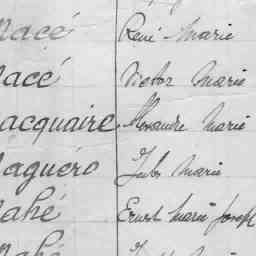 Macé René Marie
Macé Victor Marie
Macquaire Alexandre Marie
Maguéro Jules Marie
Mahé Ernest Marie Joseph
Mahé